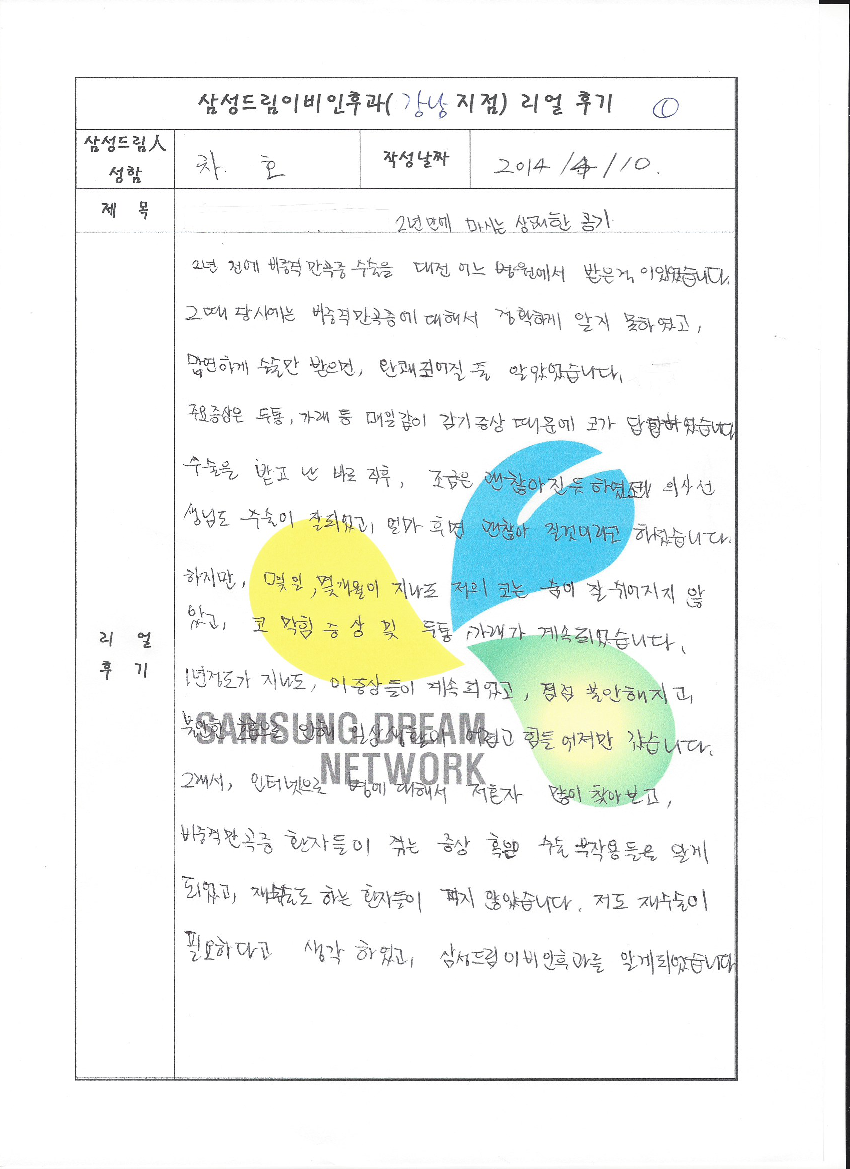 삼성드림이비인후과(강남지점) 리얼 후기 ①
삼성드림人
성함
차. 호
작성날짜
2014/4/10.
제 목
2년만에 마시는 상쾌한 공기
2년 전에 비중격만곡증 수술을 대전 어느 병원에서 받은적이있었습니다.
그때 당시에는 비중격만곡증에 대해서 정확하게 알지 못하였고,
막연하게 수술만 받으면, 완쾌되어질 줄 알았었습니다.
주요증상은 두통, 가래 등 매일같이 감기증상 때문에 코가 답답하였습니다
수술을 받고 난 바로 직후, 조금은 괜찮아진듯 하였고 의사선
생님도 수술이 잘되었고, 얼마 후면 괜찮아 질것이라고 하셨습니다.
하지만, 몇일, 몇개월이 지나도 저의 코는 숨이 잘 쉬어지지 않
았고, 코 막힘 증상 및 두통, 가래가 계속되었습니다.
1년정도가 지나도, 이증상들이 계속되었고, 점점 불안해지고,
인해 일상생활이 어렵고 힘들어져만 갔습니다.
그래서, 인터넷으로 병에 대해서 저혼자 많이 찾아보고,
비중격만곡증 환자들이 겪는 증상 혹은 수술 부작용들을 알게
되었고, 재수술도 하는 환자들이 적지 않았습니다. 저도 재수술이
필요하다고 생각 하였고, 삼성드림이비인후과를 알게되었습니다
리 얼
후 기
SAMSUNG DREAM
NETWORK